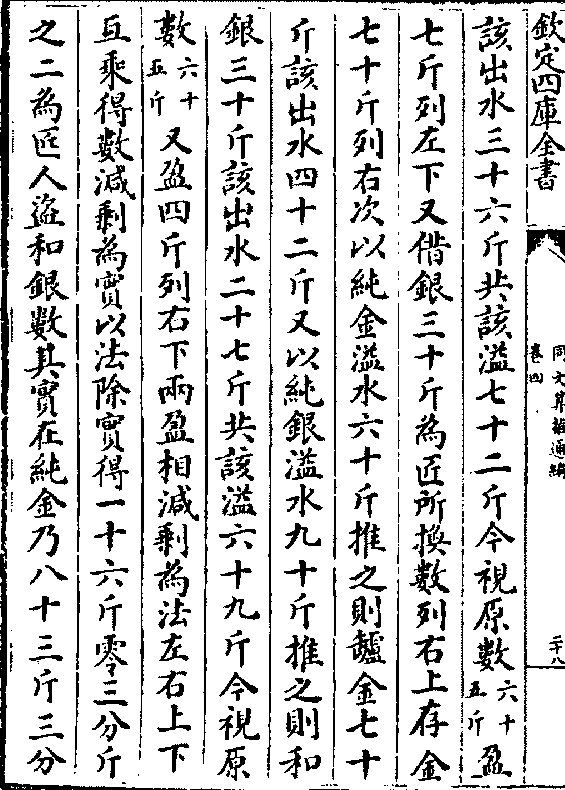 欽定四庫全書
同文算指通編
卷四
二十八
該出水三十六斤共該溢七十二斤今視原數六十五斤盈
七斤列左下又借銀三十斤為匠所換數列右上存金
七十斤列右次以純金溢水六十斤推之則爐金七十
斤該出水四十二斤又以純銀溢水九十斤推之則和
銀三十斤該出水二十七斤共該溢六十九斤今視原
數六十五斤又盈四斤列右下兩盈相減剩為法左右上下
互乘得數減剩為實以法除實得一十六斤零三分斤
之二為匠人盜和銀數其實在純金乃八十三斤三分